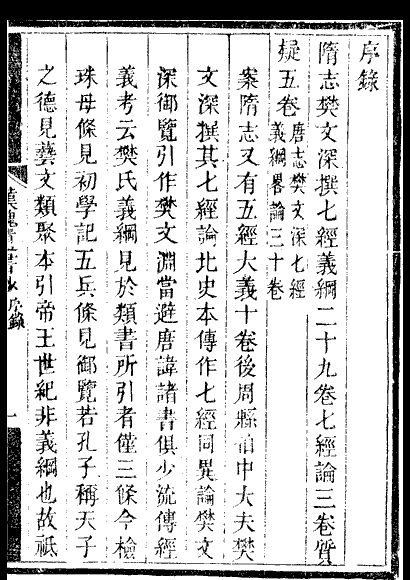 序錄
隋志樊文深撰七經義綱二十九卷七經論三卷質
疑五卷
唐志樊文深七經
義綱畧論三十卷
案隋志又有五經大義十卷後周縣伯中大夫樊
文深撰其七經論北史本傳作七經同異論樊文
深御覽引作樊文淵當避唐諱諸書俱少流傳經
義考云樊氏義綱見於類書所引者僅三條今檢
珠母條見初學記五兵條見御覽若孔子稱天子
之德見藝文類聚本引帝王世紀非義綱也故祗
序錄
一